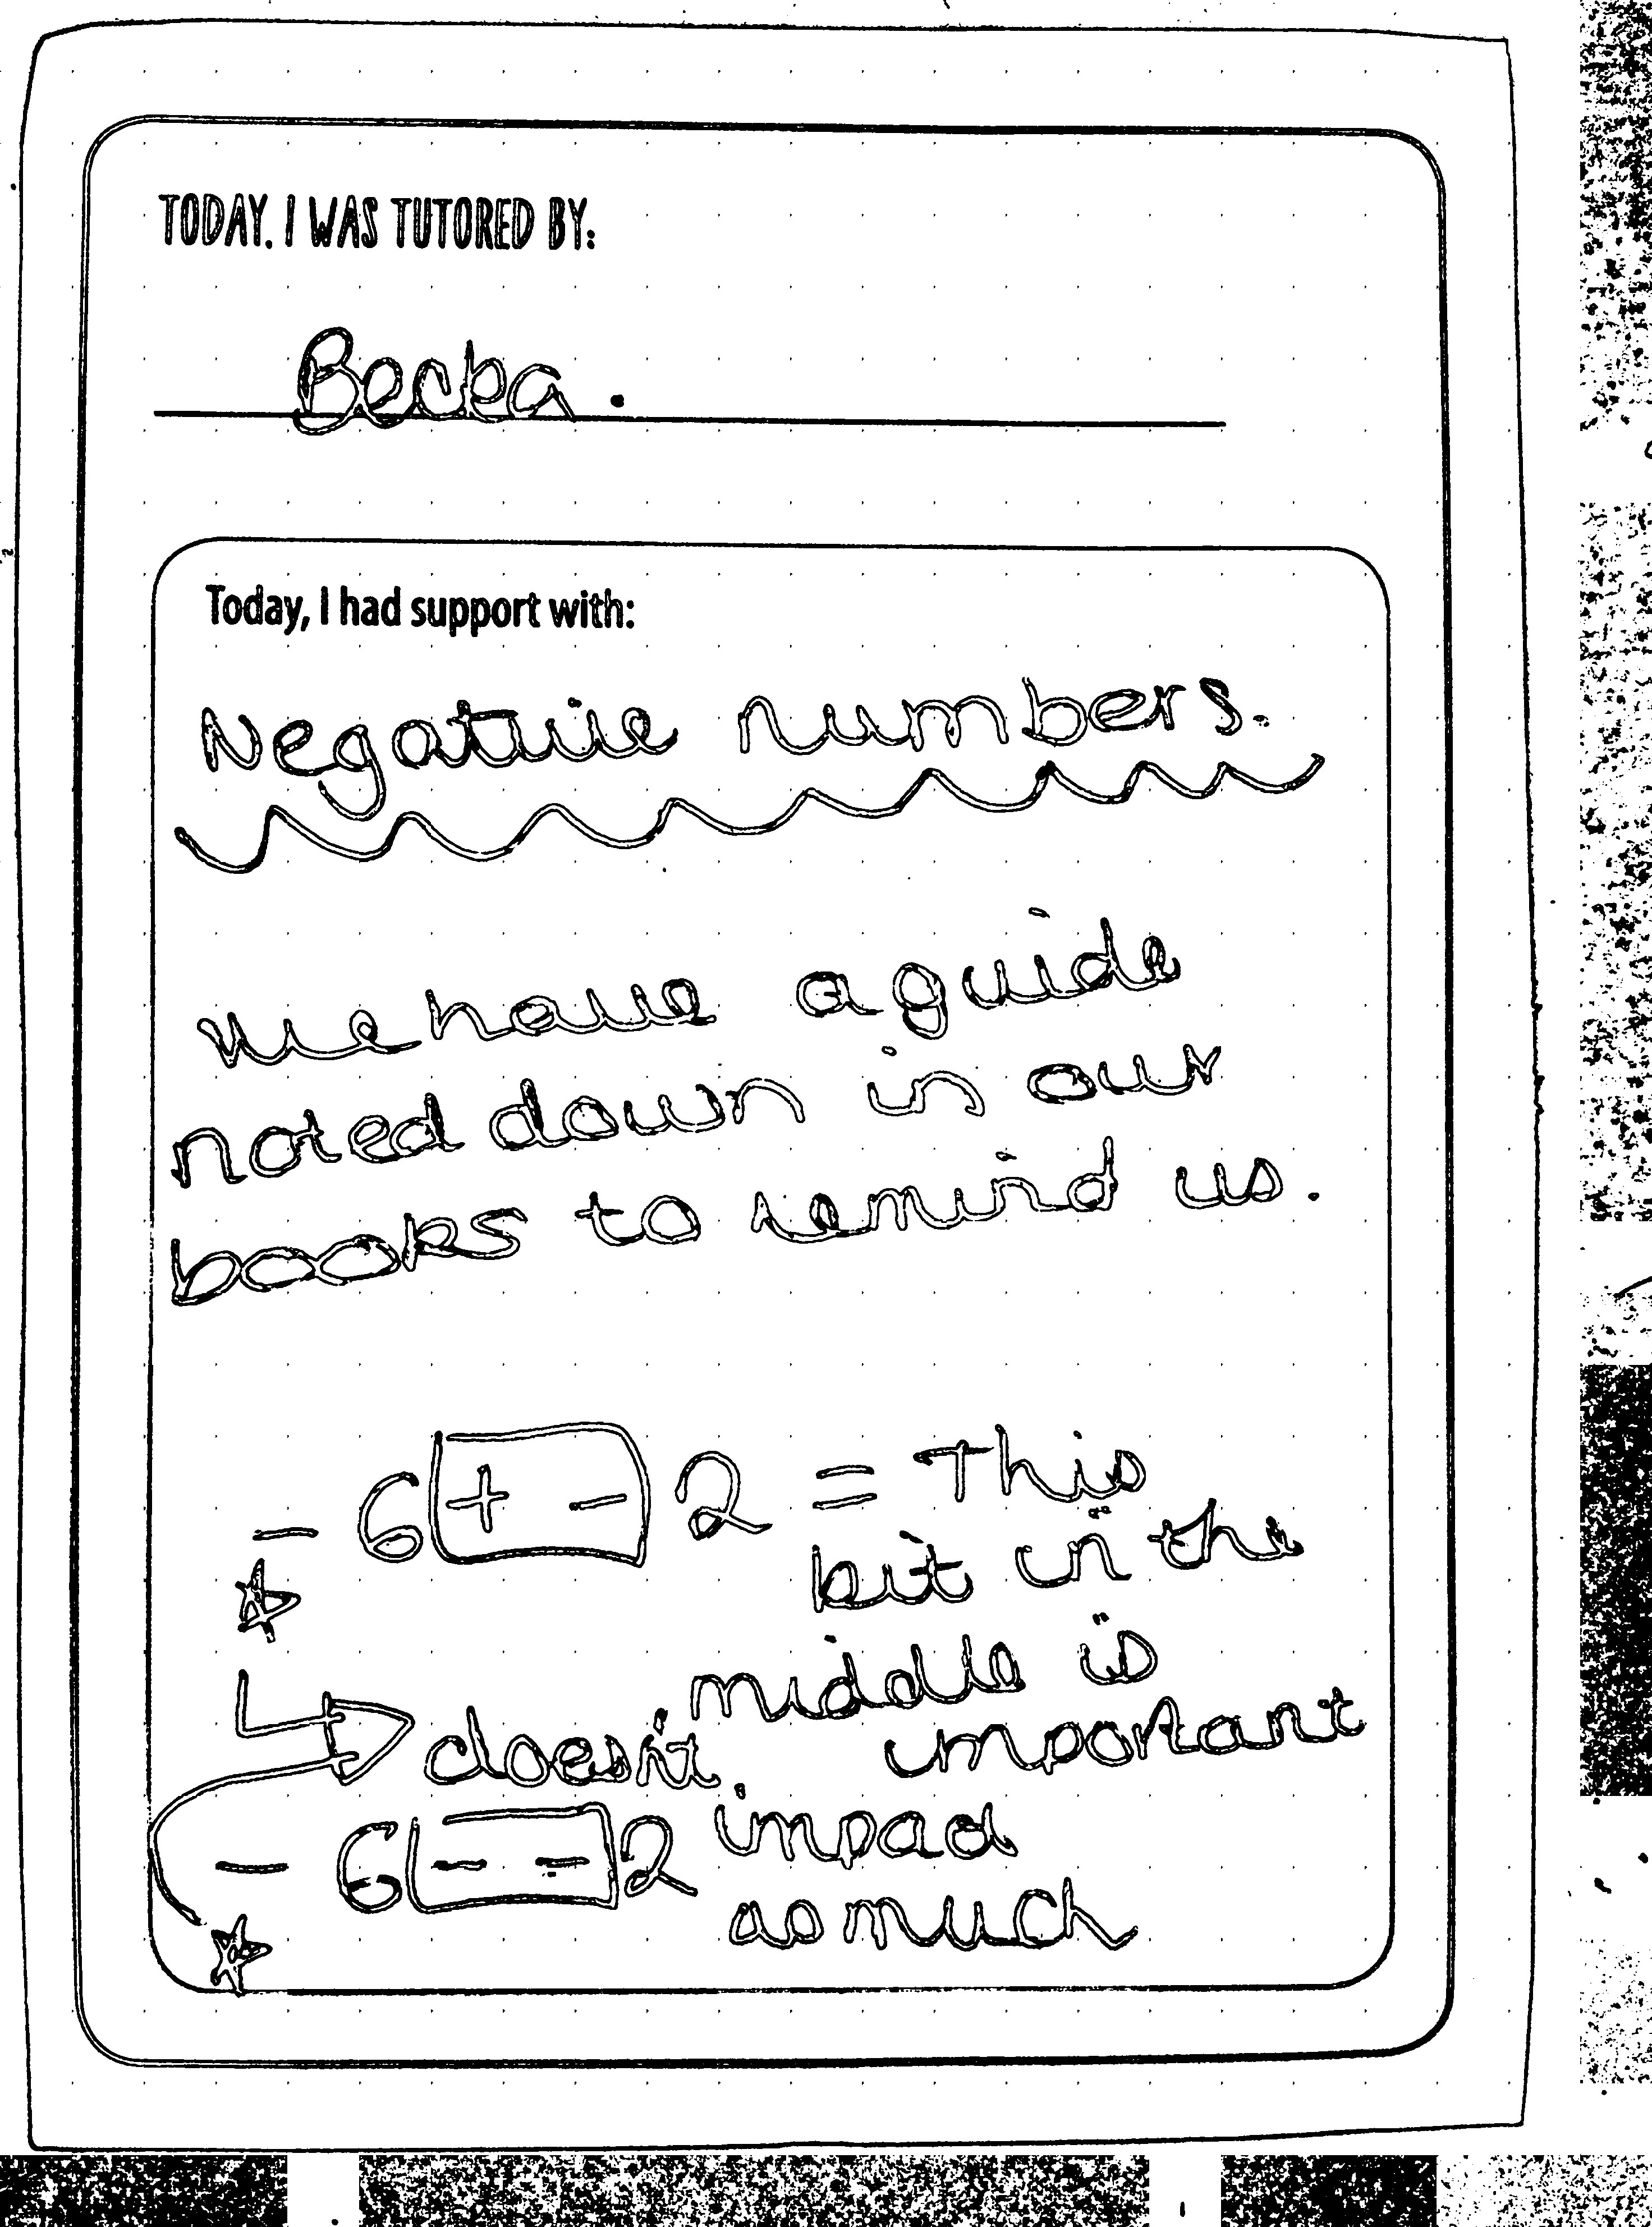 TODAY, I WAS TUTORED BY:
Becka.
Today, I had support with:
Negative numbers.
We have a guide
noted down in our
books to remind us.
- 6 + - 2 = This
bit in the
middle is
important
doesn't
impact
as much
- 6 - - 2